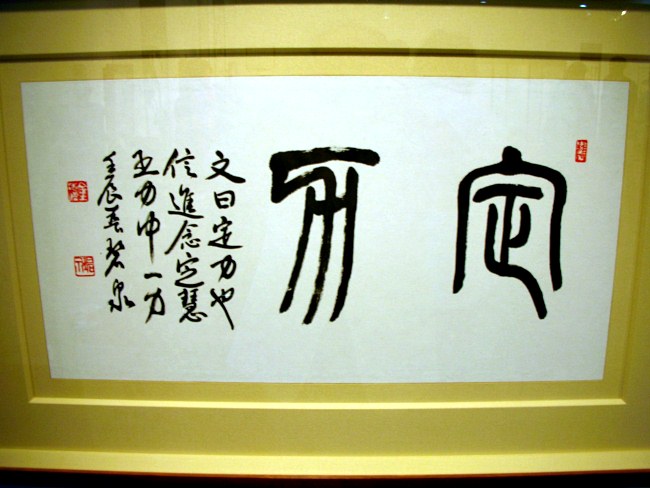 定力
文曰定力也
信進念定慧
五力中一力
壬辰春碧泉